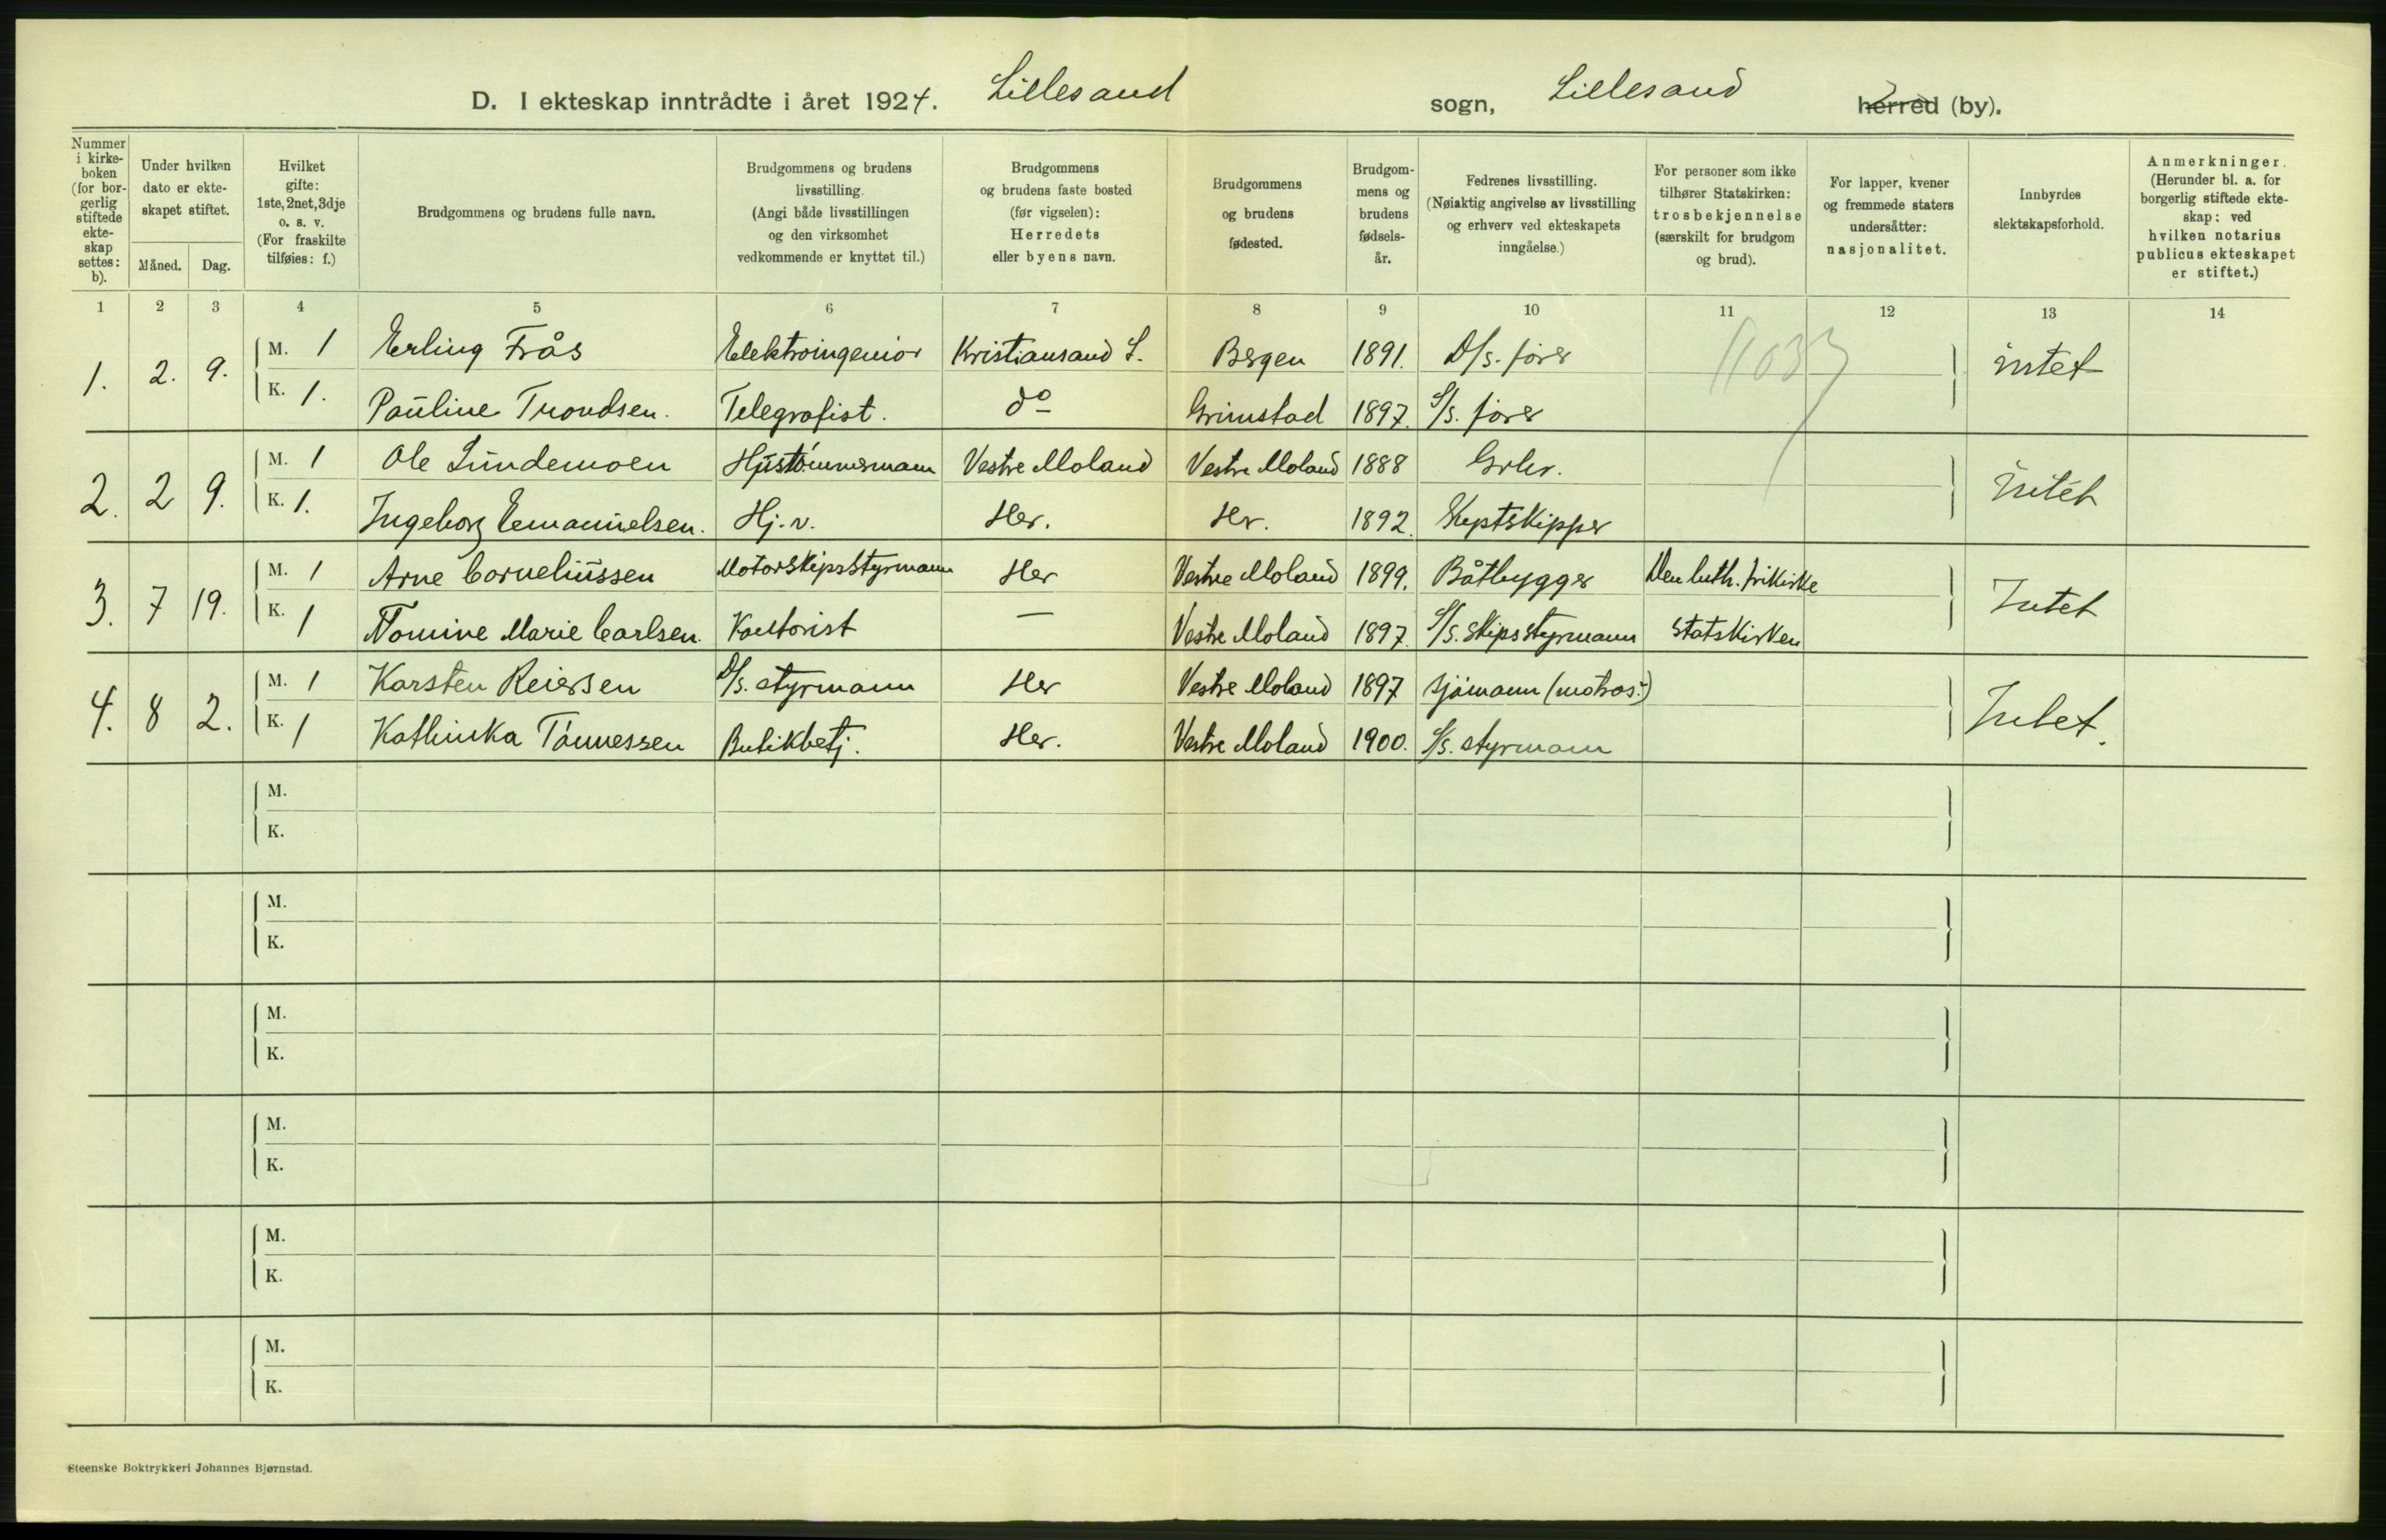 D. I ekteskap inntrådte i året 1924. Lillesand sogn, Lillesand herred (by).
Nummer i kirke-boken (for bor-gerlig stiftede ekte-skap settes: b).
Under hvilken dato er ekte-skapet stiftet.
Måned. Dag.
Hvilket gifte: 1ste, 2net, 3dje o. s. v. (For fraskilte tilføies: f.)
Brudgommens og brudens fulle navn.
Brudgommens og brudens livsstilling. (Angi både livsstillingen og den virksomhet vedkommende er knyttet til.)
Brudgommens og brudens faste bosted (før vigselen): Herredets eller byens navn.
Brudgommens og brudens fødested.
Brudgom-mens og brudens fødsels-år.
Fedrenes livsstilling. (Nøiaktig angivelse av livsstilling og erhverv ved ekteskapets inngåelse.)
For personer som ikke tilhører Statskirken: trosbekjennelse (særskilt for brudgom og brud).
For lapper, kvener og fremmede staters undersåtter: nasjonalitet.
Innbyrdes slektskapsforhold.
Anmerkninger. (Herunder bl. a. for borgerlig stiftede ekte-skap: ved hvilken notarius publicus ekteskapet er stiftet.)
1 2 3 4 5 6 7 8 9 10 11 12 13 14
1. 2. 9. M. 1 Erling Frås Elektroingeniør Kristiansand S. Bergen 1891. D/s. fører intet
K. 1. Pauline Trondsen. Telegrafist. do Grimstad 1897. S/s. fører
2. 2 9. M. 1 Ole Lundemoen Hustømmermann Vestre Moland Vestre Moland 1888 Grbr. intet
K. 1. Ingeborg Emanuelsen. Hj. v. Her. Her. 1892. Kystskipper
3. 7 19. M. 1 Arne Corneliussen Motorskipsstyrmann Her Vestre Moland 1899. Båtbygger Den luth. frikirke Intet
K. 1 Nomine Marie Carlsen. Kontorist — Vestre Moland 1897. S/s. skipsstyrmann Statskirken
4. 8 2. M. 1 Karsten Reiersen D/s. styrmann Her Vestre Moland 1897 sjømann (matros) Intet.
K. 1 Kathinka Tønnessen Butikbetj. Her. Vestre Moland 1900. S/s. styrmann
M.
K.
M.
K.
M.
K.
M.
K.
M.
K.
M.
K.
Steenske Boktrykkeri Johannes Bjørnstad.